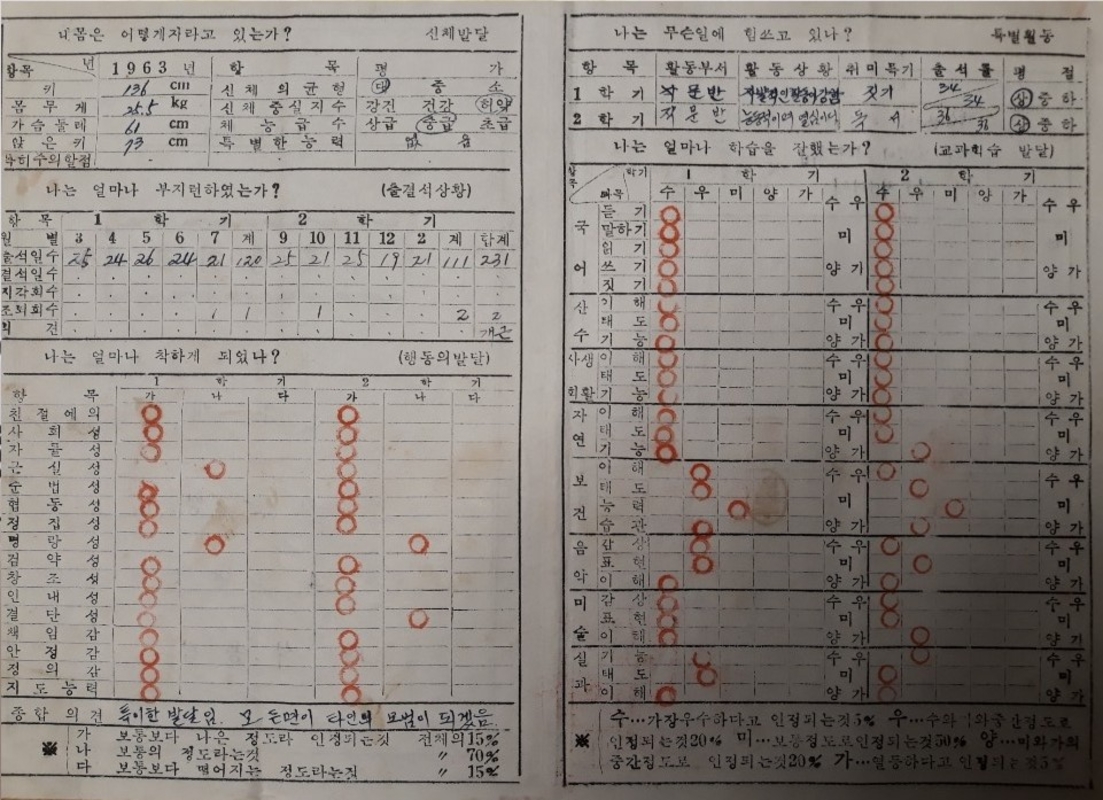 내몸은 어떻게자라고 있는가? 신체발달
항목 년 1963 년 항 목 평 가
키 136 cm 신체의균형 대 중 소
몸무게 25.5 kg 신체충실지수 강진 전강 허약
가슴둘레 61 cm 체능급수 상급 중급 초급
앉은키 73 cm 특별한능력 없 음
나는 얼마나 부지런하였는가? (출결석상황)
항목 1 학 기 2 학 기
월별 3 4 5 6 7 계 9 10 11 12 2 계 합계
출석일수 25 24 26 24 21 120 25 21 25 19 21 111 231
결석일수 . . . . . . . . . . . . .
지각회수 . . . . . . . . . . . . .
조퇴회수 1 1 1 2 2
의견 개근
나는 얼마나 착하게 되었나? (행동의발달)
1 학 기 2 학 기
항 목 가 나 다 가 나 다
친절예의
사회성
자률성
근실성
준법성
협동성
정집성
명랑성
검약성
창조성
인내성
결단성
책임감
안정감
정의감
지도능력
종합의견 특이한 발달임. 모든면이 타인의 모범이 되겠음
※ 가 보통보다 나은 정도라 인정되는것 전체의15%
나 보통의 정도라는것 〃 70%
다 보통보다 떨어지는 정도라는것 〃 15%
나는 무슨일에 힘쓰고 있나? 특별활동
항 목 활동부서 활동상황 취미특기 출석률 평 점
1 학 기 작문반 짓기 34 34 상중하
2 학 기 작문반 36 36 상중하
나는 얼마나 학습을 잘했는가? (교과학습 발달)
학기 1 학 기 2 학 기
과목 수 우 미 양 가 수 우 미 양 가
국어 듣기 수 우 수 우
말하기
읽기 미 미
쓰기 양 가 양 가
짓기
산수 이해 수 우 수 우
태도 미 미
기능 양가 양가
사회생활 이해 수 우 수 우
태도 미 미
기능 양가 양가
자연 이해 수 우 수 우
태도 미 미
기능 양가 양가
보건 이해 수 우 수 우
태도
능력 미 미
습관 양 가 양 가
음악 감상 수 우 수 우
표현 미 미
이해 양가 양가
미술 감상 수 우 수 우
표현 미 미
이해 양가 양기
실과 기능 수 우 수 우
태도 미 미
이해 양가 양가
※ 수…가장우수하다고 인정되는것5% 우…수와미와중간정도로
인정되는것20% 미…보통정도로인정되는것50% 양…미와가의
중간정도로 인정되는것20% 가…열등하다고 인정되는것5%